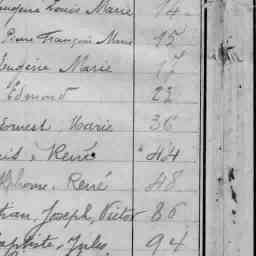 Eugène Louis Marie 14
Pierre François Marie 15
Eugène Marie 17
Edmond 23
Ernest Marie 36
René 44
Alphonse René 48
Joseph, Victor 86
Baptiste, Jules 94